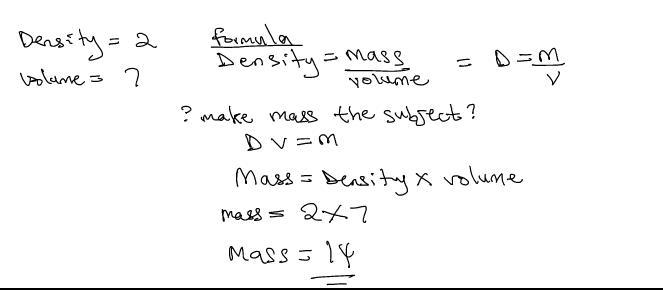 Density = 2
volume = 7
formula
Density = mass / volume = D = m / V
? make mass the subject?
D V = m
Mass = Density x volume
mass = 2 x 7
Mass = 14